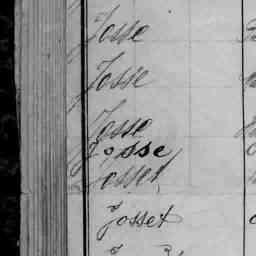 Josse
Josse
Josse
Josse
Josset
Josset